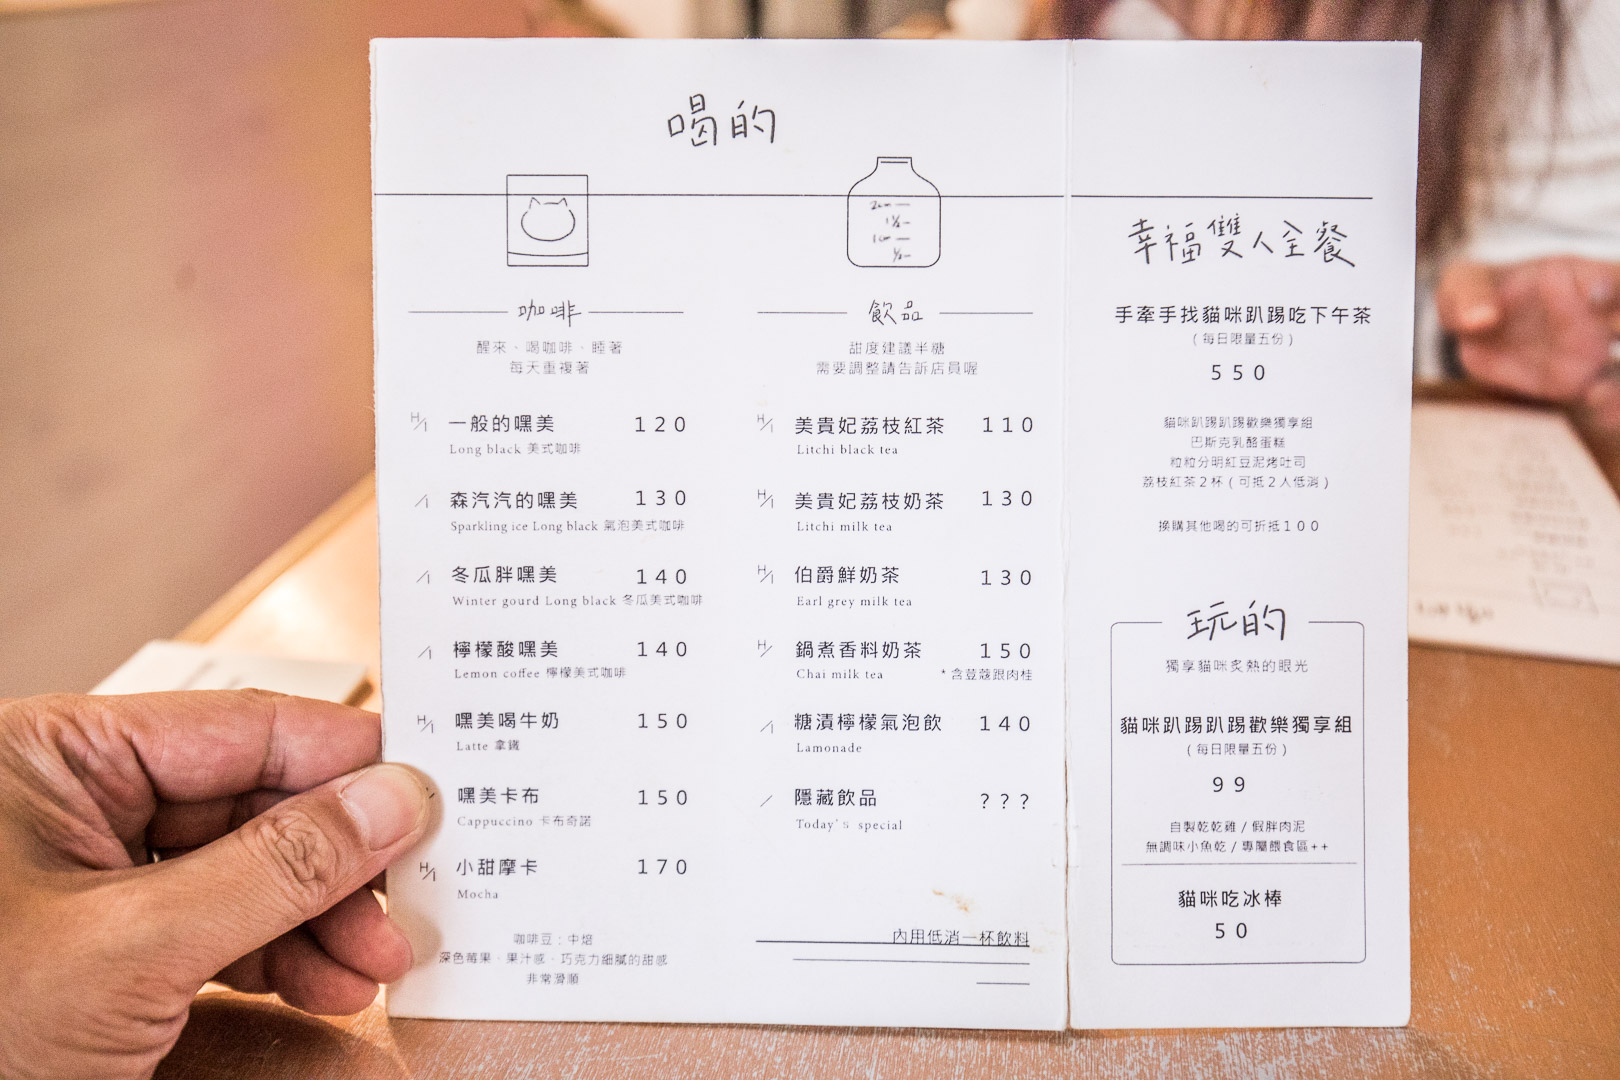 喝的
咖啡
醒來、喝咖啡、睡著
每天重複著
H/I 一般的嘿美 120
Long black 美式咖啡
/I 森汽汽的嘿美 130
Sparkling ice Long black 氣泡美式咖啡
/I 冬瓜胖嘿美 140
Winter gourd Long black 冬瓜美式咖啡
/I 檸檬酸嘿美 140
Lemon coffee 檸檬美式咖啡
H/I 嘿美喝牛奶 150
Latte 拿鐵
嘿美卡布 150
Cappuccino 卡布奇諾
H/I 小甜摩卡 170
Mocha
咖啡豆：中焙
深色莓果、果汁感、巧克力細膩的甜感
非常滑順
2cm
1½
1cm
½
飲品
甜度建議半糖
需要調整請告訴店員喔
H/I 美貴妃荔枝紅茶 110
Litchi black tea
H/I 美貴妃荔枝奶茶 130
Litchi milk tea
H/I 伯爵鮮奶茶 130
Earl grey milk tea
H/ 鍋煮香料奶茶 150
Chai milk tea *含荳蔻跟肉桂
/I 糖漬檸檬氣泡飲 140
Lamonade
/ 隱藏飲品 ???
Today's special
內用低消一杯飲料
幸福雙人全餐
手牽手找貓咪趴踢吃下午茶
(每日限量五份)
550
貓咪趴踢趴踢歡樂獨享組
巴斯克乳酪蛋糕
粒粒分明紅豆泥烤吐司
荔枝紅茶2杯(可抵2人低消)
換購其他喝的可折抵100
玩的
獨享貓咪炙熱的眼光
貓咪趴踢趴踢歡樂獨享組
(每日限量五份)
99
自製乾乾雞/假胖肉泥
無調味小魚乾/專屬餵食區++
貓咪吃冰棒
50